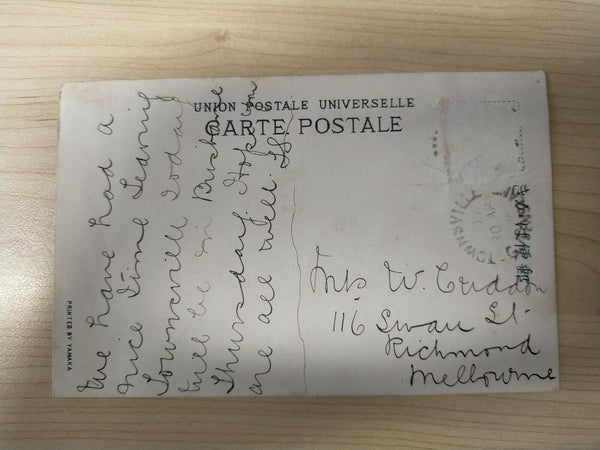 UNION POSTALE UNIVERSELLE
CARTE POSTALE
We have had a
nice time Leaving
Townsville today
will be in Brisbane
Thursday. Hope you
are all well.
Mrs W. Cuddon
116 Swan St.
Richmond
Melbourne
PRINTED BY YAMAKA
20 AP